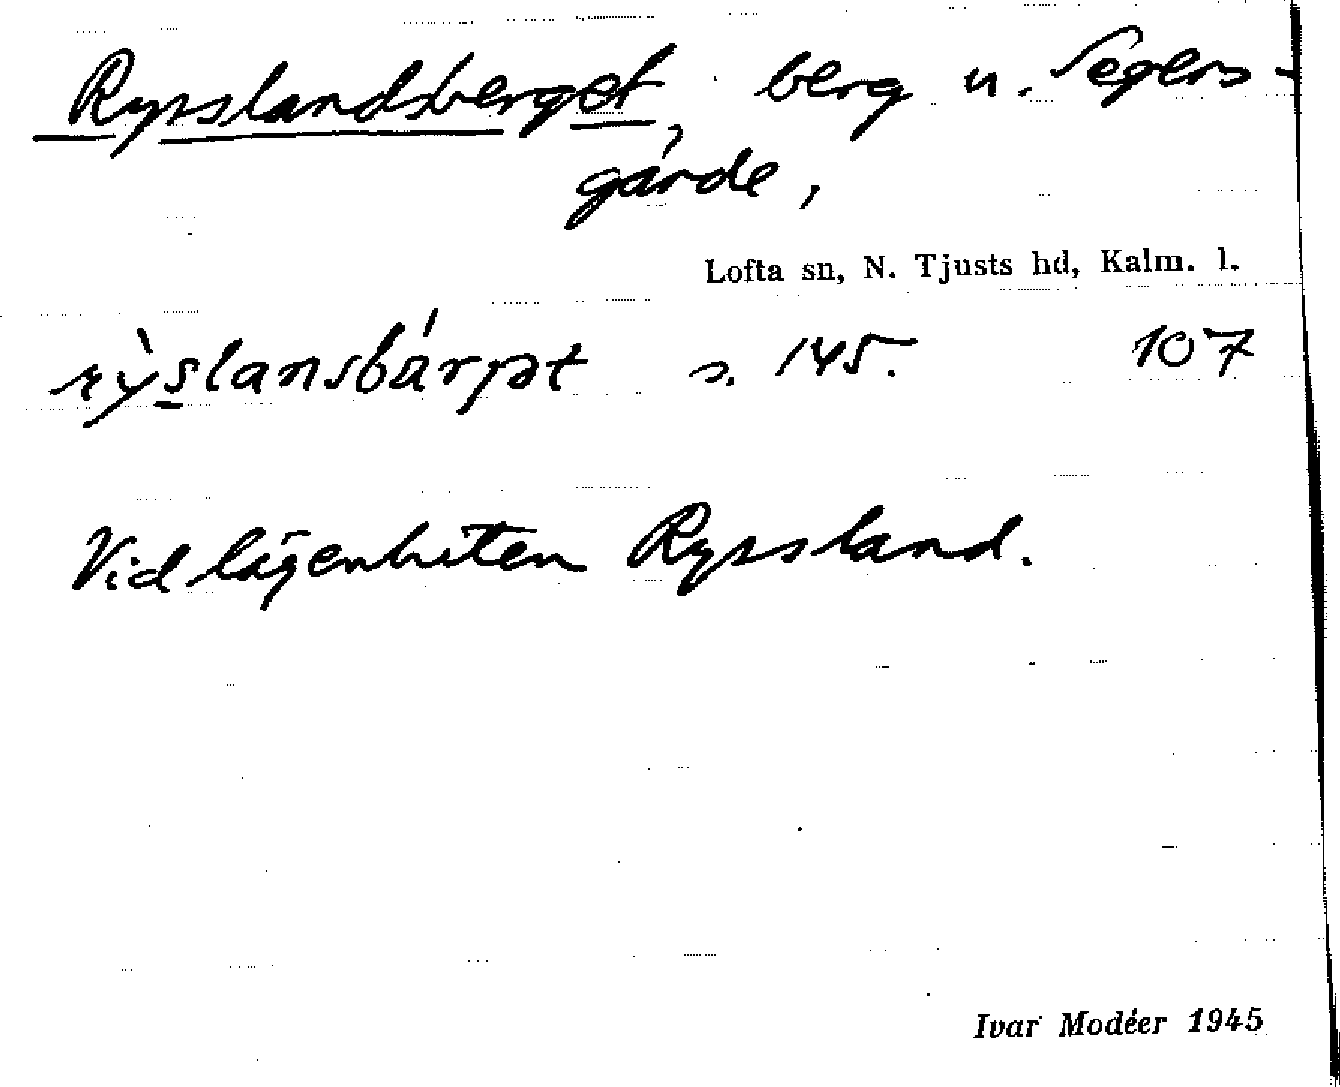 Rysslandsberget, berg u. Segers-
gärde,
Lofta sn, N. Tjusts hd, Kalm. l.
s. 145. 107
Vid lägenheten Ryssland.
Ivar Modéer 1945